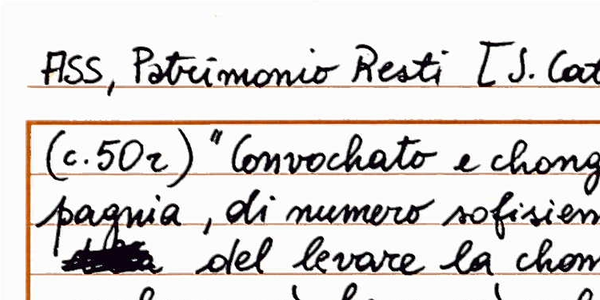 ASS, Patrimonio Resti [S. Cat
(c.50r) "Convochato e chong
pagnia, di numero sofisien
del levare la chom